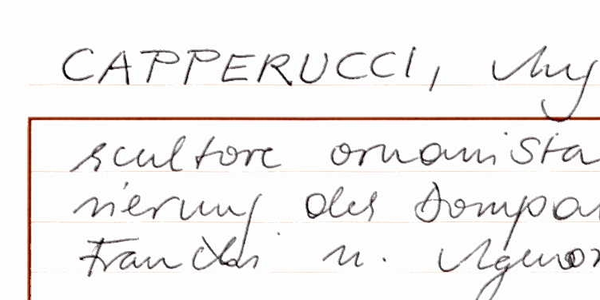 CAPPERUCCI, Aug
scultore ornamista
nierung des Dompa
Franchi u. Agenor